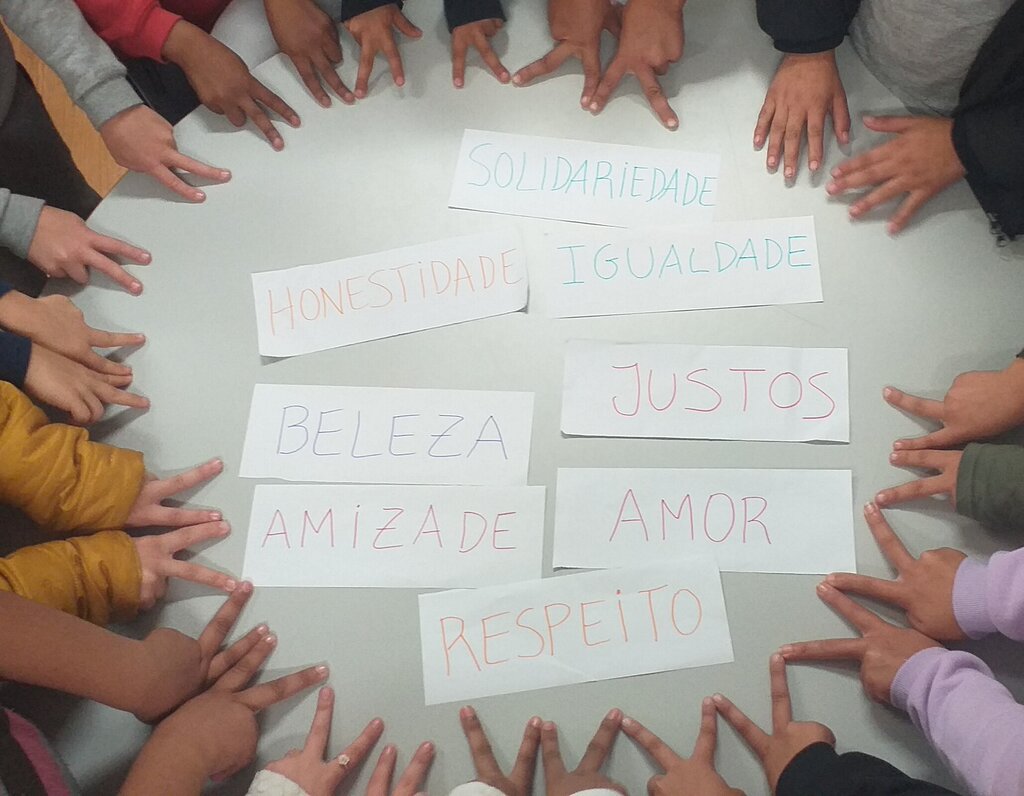 SOLIDARIEDADE
HONESTIDADE
IGUALDADE
JUSTOS
BELEZA
AMIZADE
AMOR
RESPEITO